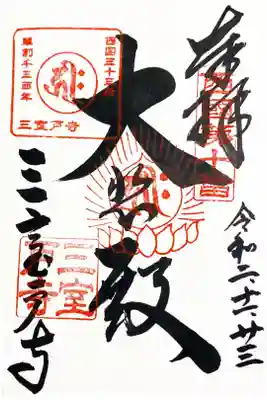 奉拝
西国第十番
令和二・十二・廿三
大悲殿
西国三十三所
草創千三百年
三室戸寺
三室戸寺
三室
戸寺